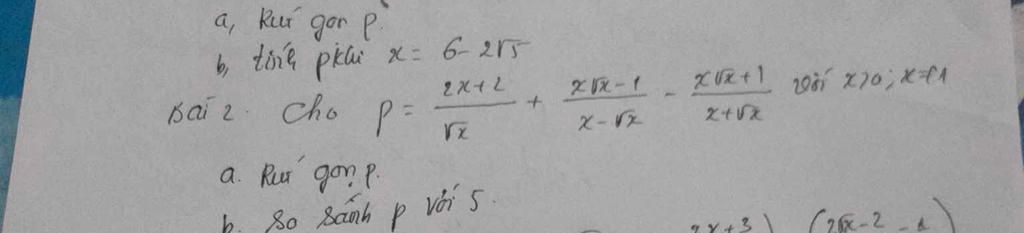 a, Rút gọn P.
b, tính P khi x = 6 - 2√5
Bài 2. Cho P = (2x+2)/√x + (x√x - 1)/(x - √x) - (x√x + 1)/(x + √x) với x>0; x≠1
a. Rút gọn P.
b. So sánh P với 5.
2x+3) (2√x - 2 - 1)